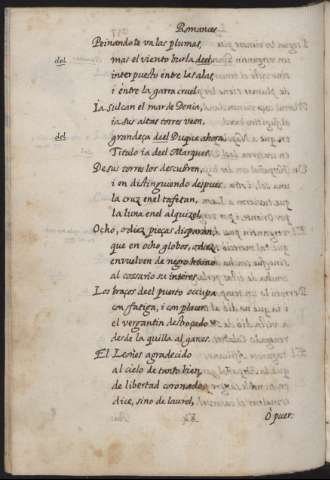 Romances
Peinandote va las plumas,
del mas el viento burla deel
interpuesto entre las alas,
i entre la garra cruel.
Ia sulcan el mar de Denia,
ia sus altas torres veen,
del grandeça deel Duque ahora,
Titulo ia deel Marques.
De sus torres los descubren,
i en distinguiendo despues
la cruz en el tafetan,
la luna en el alquizel.
Ocho, o diez pieças disparan,
que en ocho globos, o diez
envuelven de negro humo
al cossario su interes.
Los braços deel puerto occupa
con fatiga, i con placer
el vergantin destroçado
desde la quilla al ganes.
El Leones agradecido
al cielo de tanto bien,
de libertad coronado,
dice, sino de laurel,
O puer.